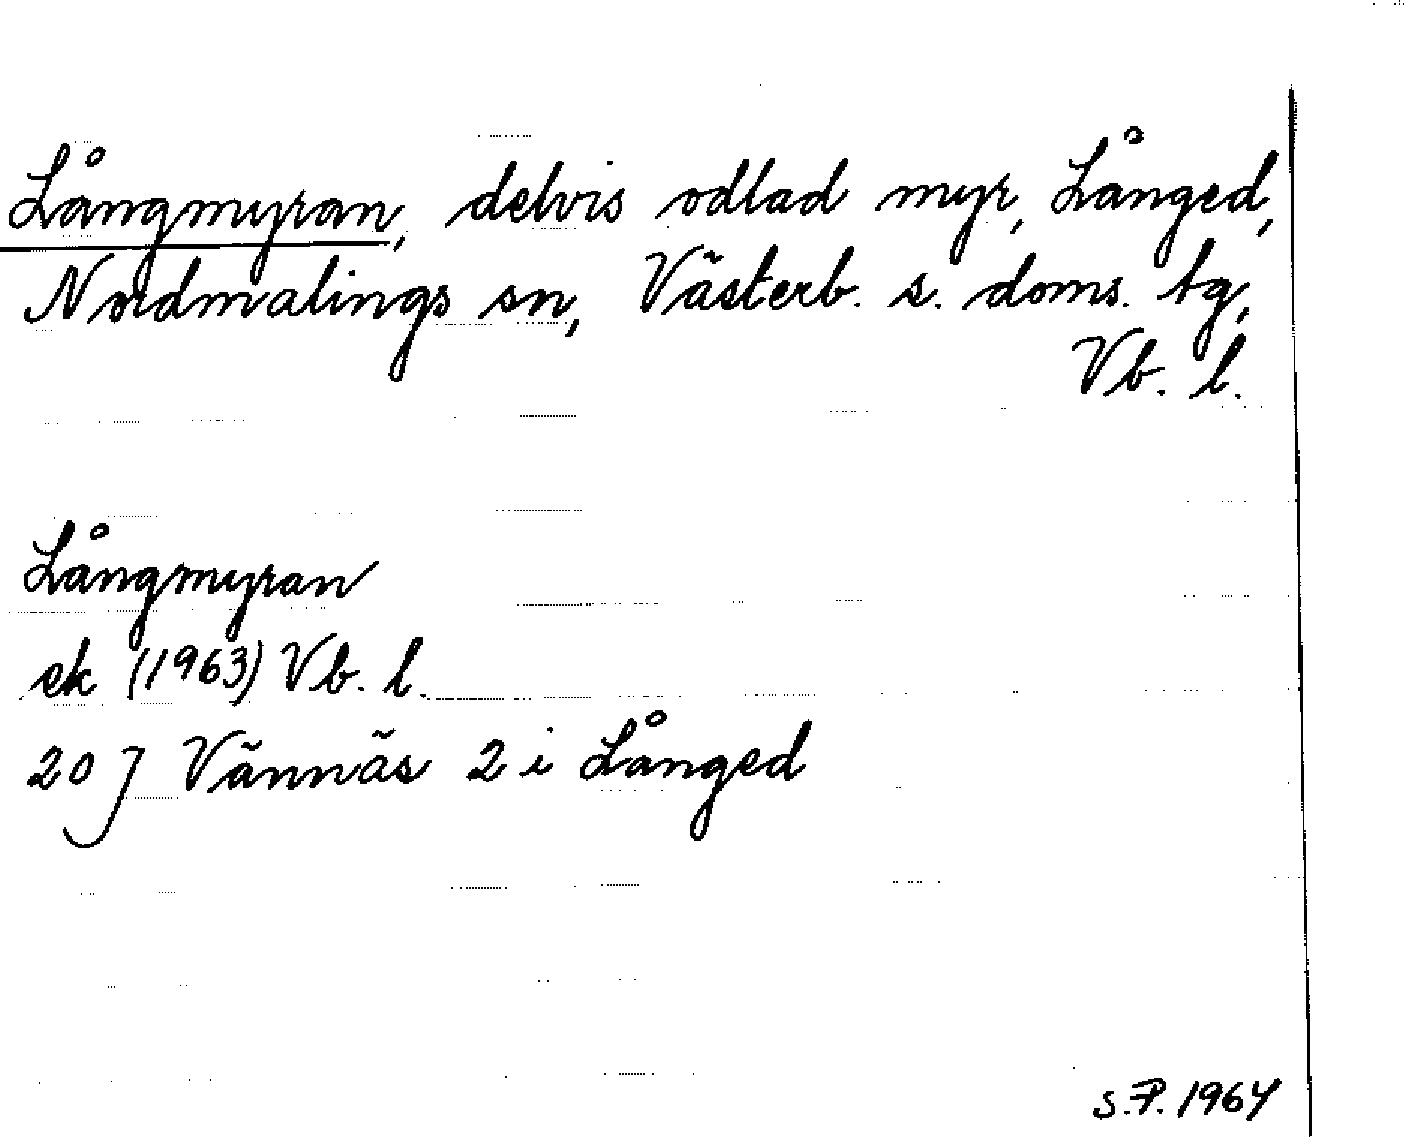 Långmyran, delvis odlad myr, Långed,
Nordmalings sn, Västerb. s. doms. tg,
Vb. l.
Långmyran
ek (1963) Vb. l.
20 J Vännäs 2 i Långed
S.P. 1964